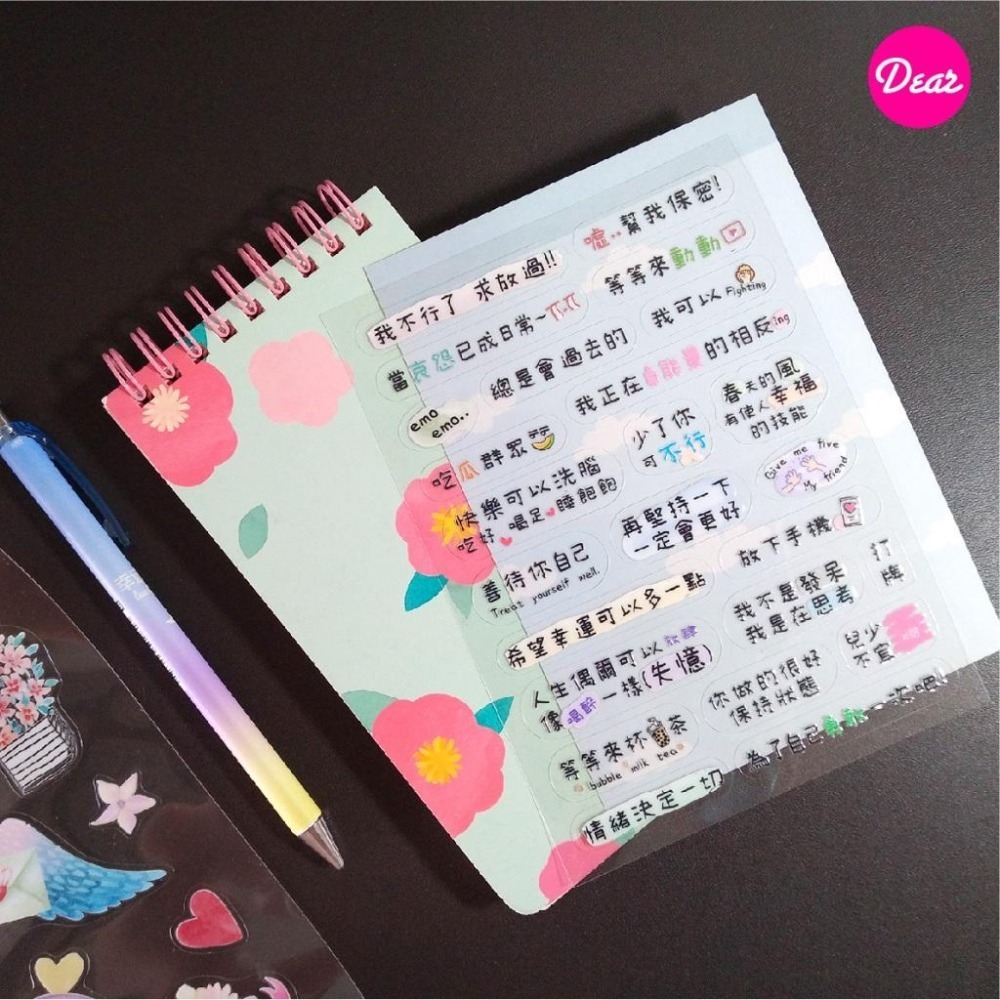 Dear
我不行了 求放過!!
噓..幫我保密!
當哀怨已成日常~
等等來動動
emo
emo..
總是會過去的
我可以 Fighting
吃瓜群眾
我正在養能量的相反ing
快樂可以洗腦
吃好 喝足 睡飽飽
少了你
可不行
春天的風
有使人幸福
的技能
善待你自己
Treat yourself well.
再堅持一下
一定會更好
Give me five
My friend
希望幸運可以多一點
放下手機
人生偶爾可以
像喝醉一樣(失憶)
我不是發呆
我是在思考
打
牌
等等來杯茶
bubble milk tea
你做的很好
保持狀態
兒少
不宜
情緒決定一切
為了自己